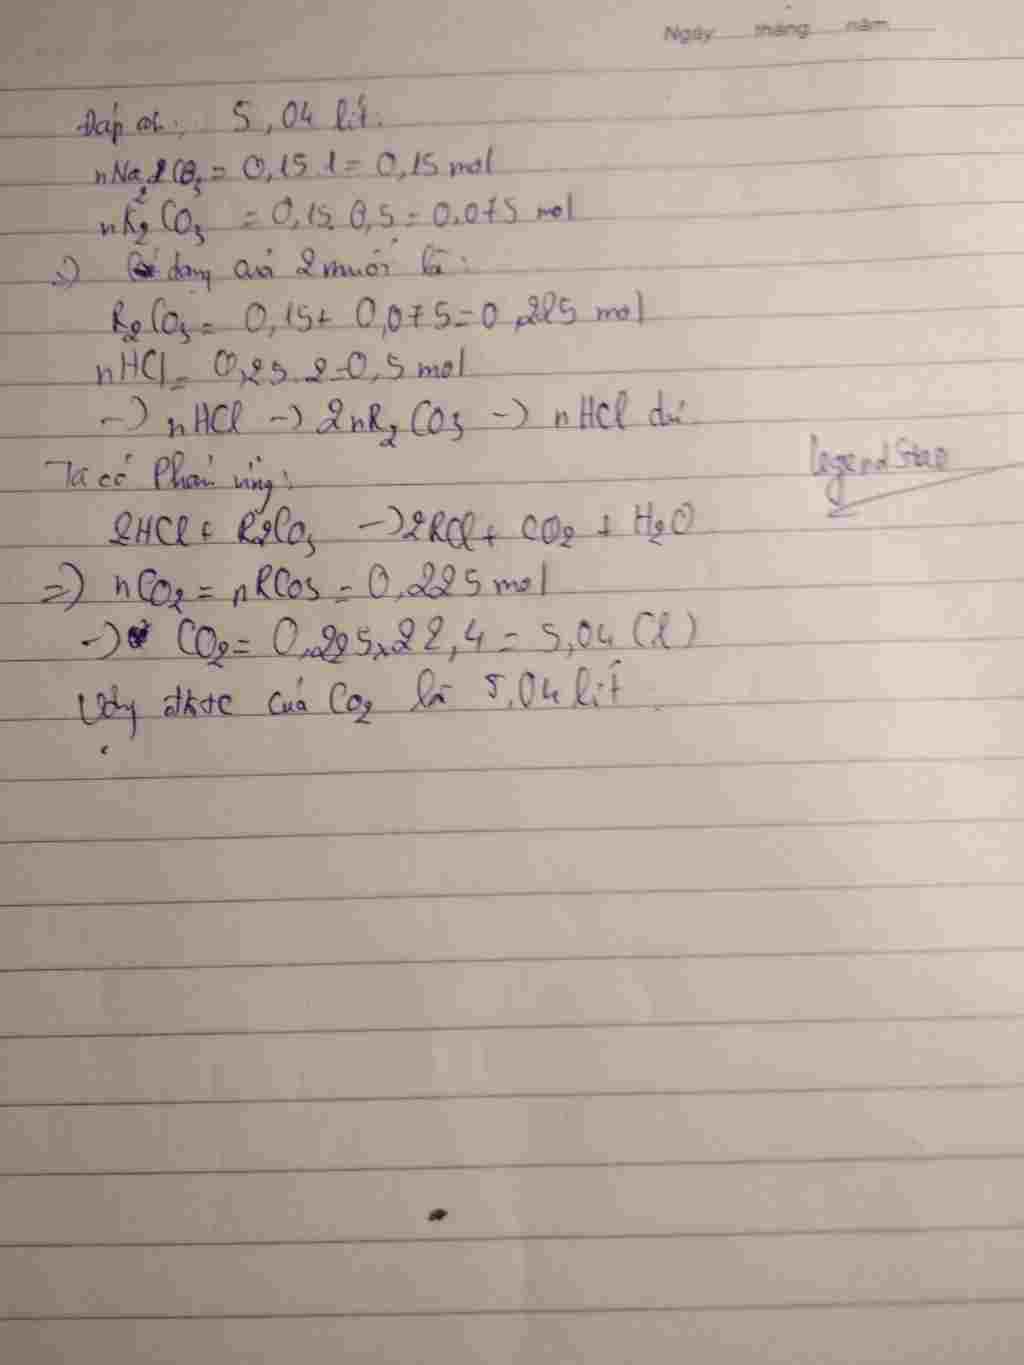 Ngày tháng năm
Đáp án: 5,04 lít.
nNa2CO3 = 0,15.1 = 0,15 mol
nK2CO3 = 0,15.0,5 = 0,075 mol
=) dạng của 2 muối là:
R2CO3 = 0,15+ 0,075=0,225 mol
nHCl = 0,25.2=0,5 mol
-) nHCl -) 2nR2CO3 -) nHCl dư
Ta có Phản ứng:
LegendStar
2HCl + R2CO3 -)2RCl + CO2 + H2O
=) nCO2 = nRCO3 = 0,225 mol
-) CO2 = 0,225.22,4 = 5,04 (l)
Vậy đktc của CO2 là 5,04 lít.